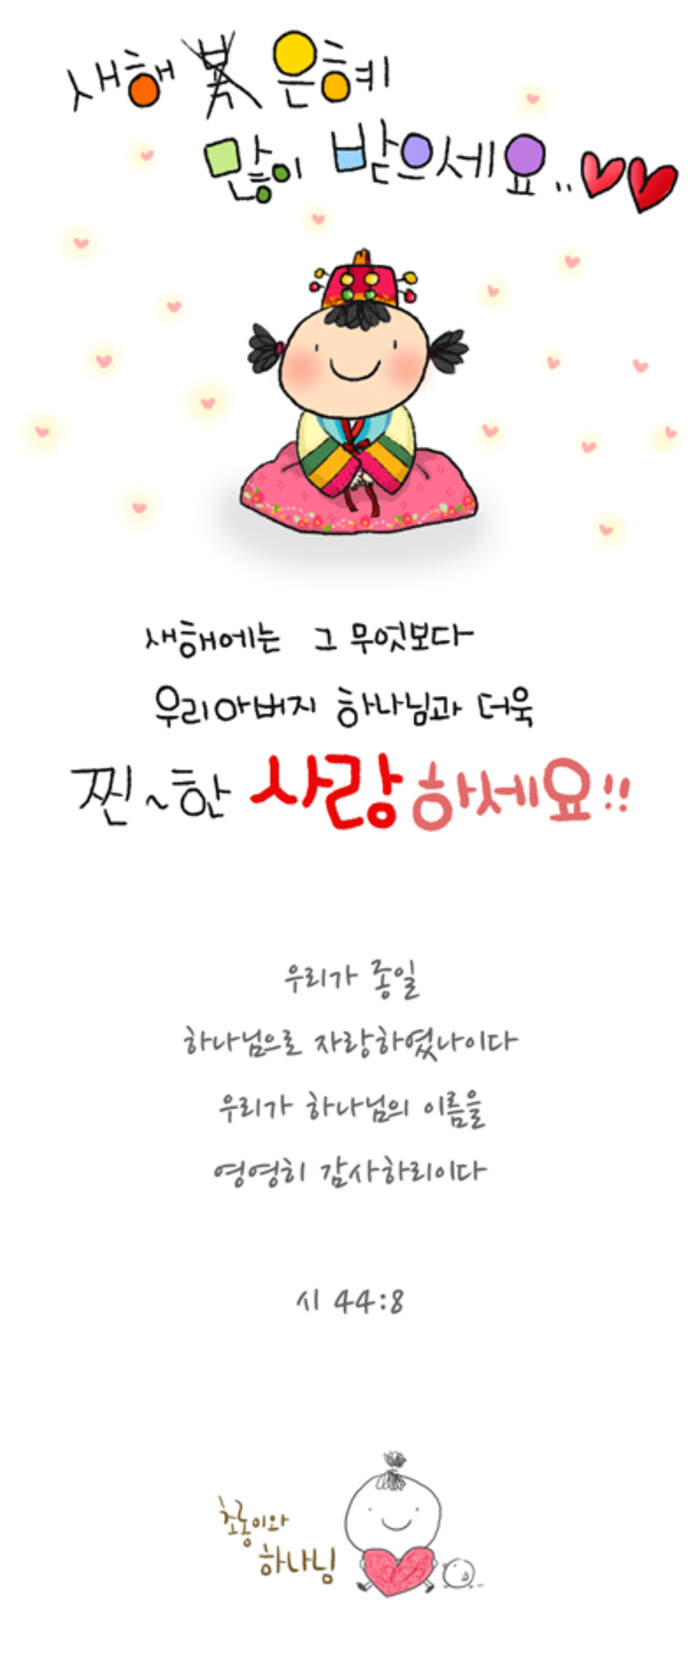 새해 복 은혜
많이 받으세요..
새해에는 그 무엇보다
우리아버지 하나님과 더욱
찐~한 사랑하세요!!
우리가 종일
하나님으로 자랑하였나이다
우리가 하나님의 이름을
영영히 감사하리이다
시 44:8
초롱이와
하나님